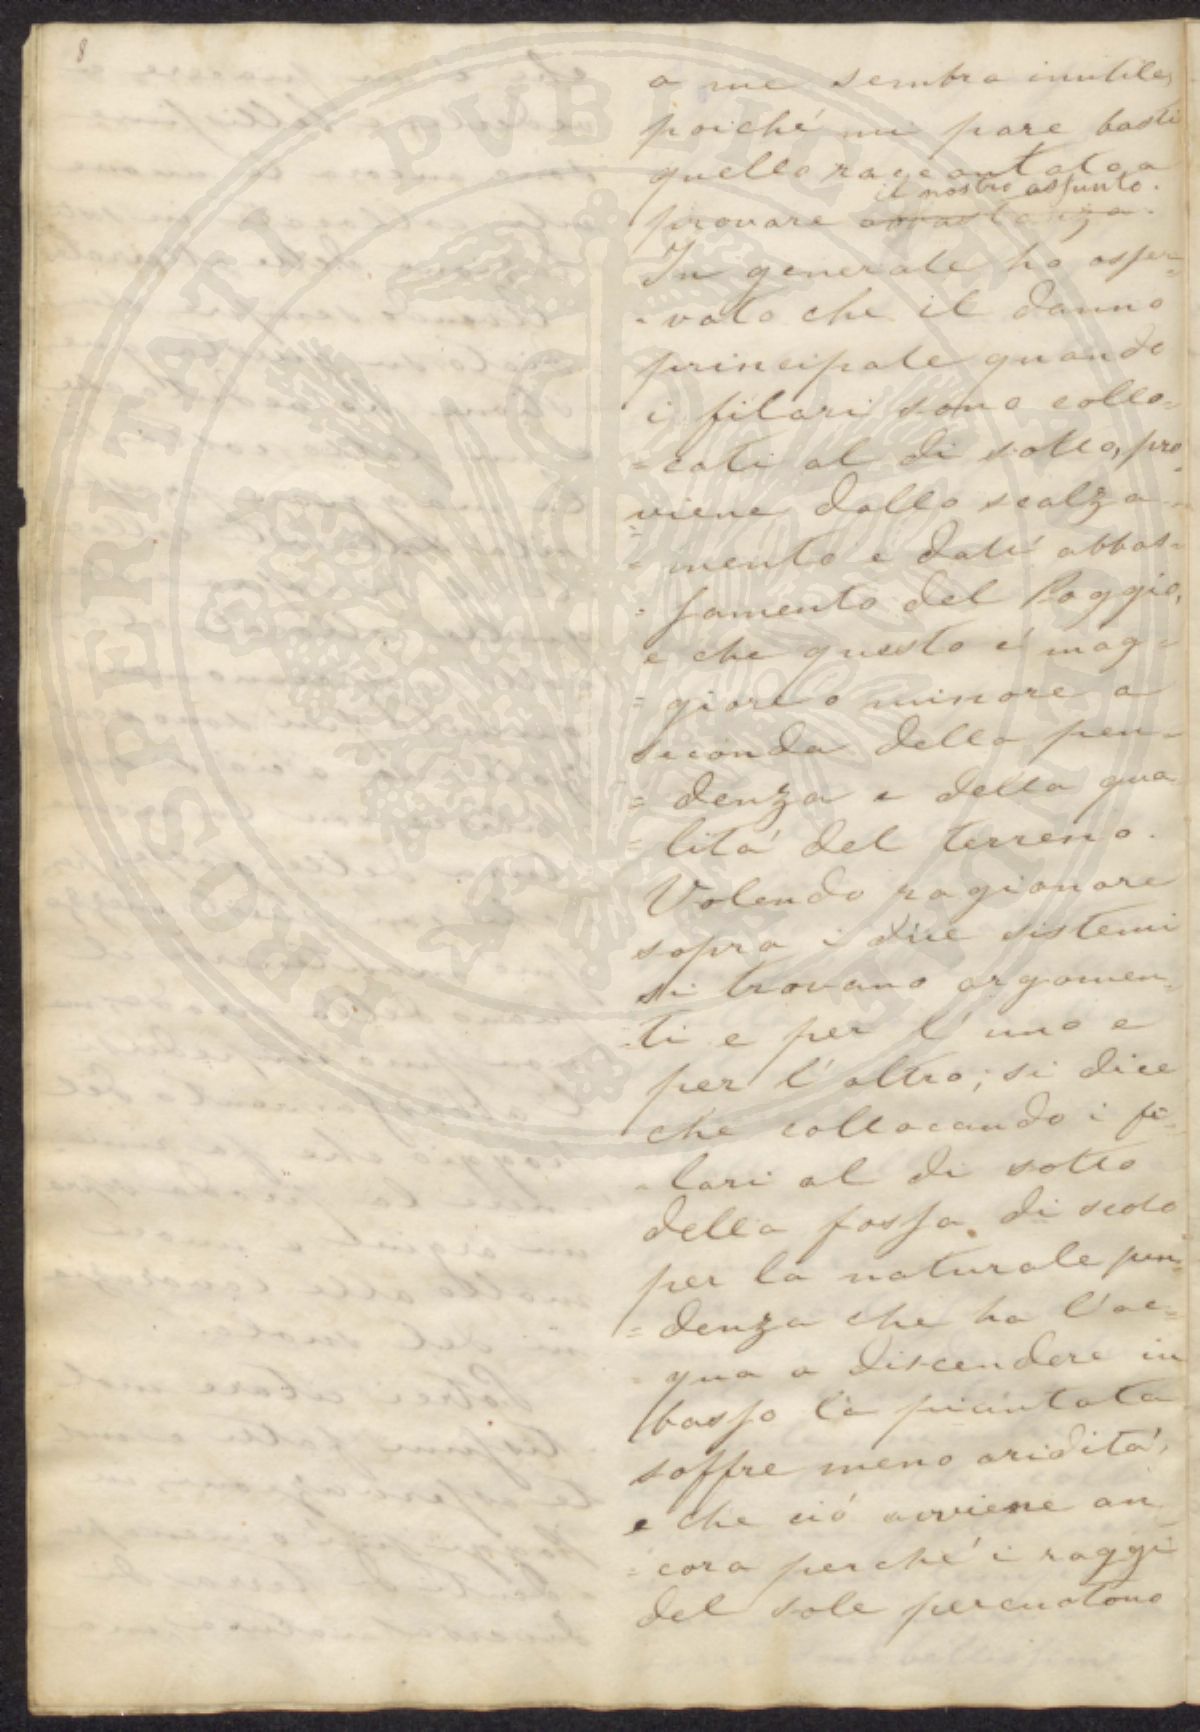 8
a me sembra inutile,
poiché mi pare basti
quello raccontato a
il nostro assunto.
provare abbastanza.
In generale ho osser=
=vato che il danno
principale quando
i filari sono collo=
=cati al di sotto, pro=
=viene dallo scalza=
=mento e dall' abbas=
=samento del Poggio,
e che questo é mag=
=giore o minore a
seconda della pen=
=denza e della qua
=litá del terreno.
Volendo ragionare
sopra i due sistemi
si trovano argomen=
=ti e per l'uno e
per l'altro; si dice
che collocando i fi=
=lari al di sotto
della fossa di scolo
per la naturale pen=
=denza che ha l'ac=
=qua a discendere in
basso la piantata
soffre meno ariditá,
e che ció avviene an
=cora perché i raggi
del sole percuotono
PROSPERITATI PUBLICAE